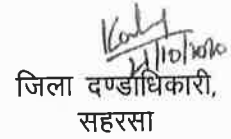 21/10/2020
जिला दण्डाधिकारी,
सहरसा